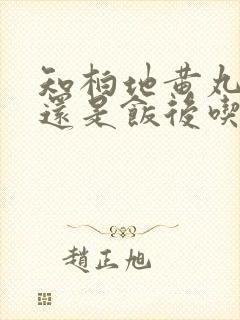 知柏地黄丸
還是飯後喫
趙正旭